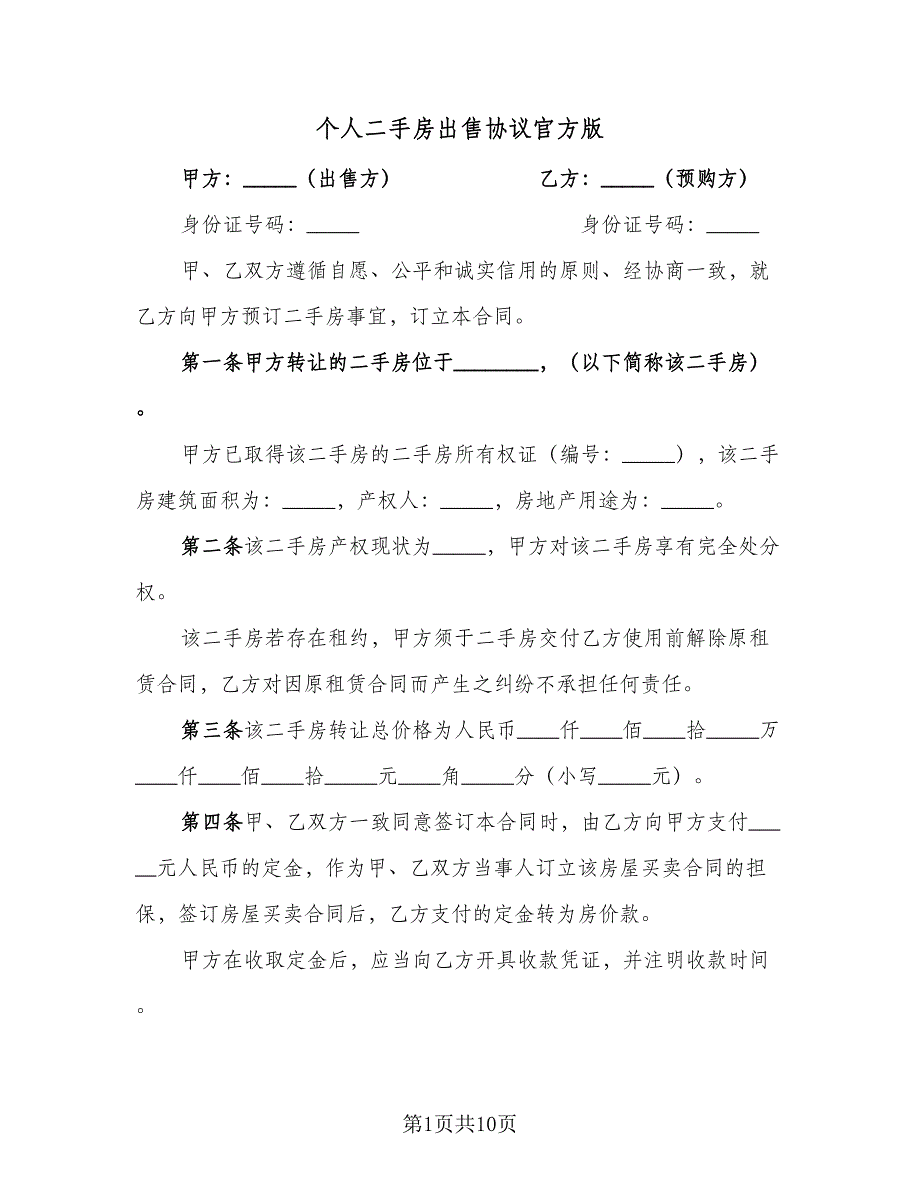 个人二手房出售协议官方版
甲方：_____（出售方） 乙方：_____（预购方）
身份证号码：_____ 身份证号码：_____
甲、乙双方遵循自愿、公平和诚实信用的原则、经协商一致，就
乙方向甲方预订二手房事宜，订立本合同。
第一条甲方转让的二手房位于________，（以下简称该二手房）
。
甲方已取得该二手房的二手房所有权证（编号：_____），该二手
房建筑面积为：_____，产权人：_____，房地产用途为：_____。
第二条该二手房产权现状为_____，甲方对该二手房享有完全处分
权。
该二手房若存在租约，甲方须于二手房交付乙方使用前解除原租
赁合同，乙方对因原租赁合同而产生之纠纷不承担任何责任。
第三条该二手房转让总价格为人民币____仟____佰____拾_____万
____仟____佰____拾_____元____角_____分（小写_____元）。
第四条甲、乙双方一致同意签订本合同时，由乙方向甲方支付___
__元人民币的定金，作为甲、乙双方当事人订立该房屋买卖合同的担
保，签订房屋买卖合同后，乙方支付的定金转为房价款。
甲方在收取定金后，应当向乙方开具收款凭证，并注明收款时间
。
第1页共10页